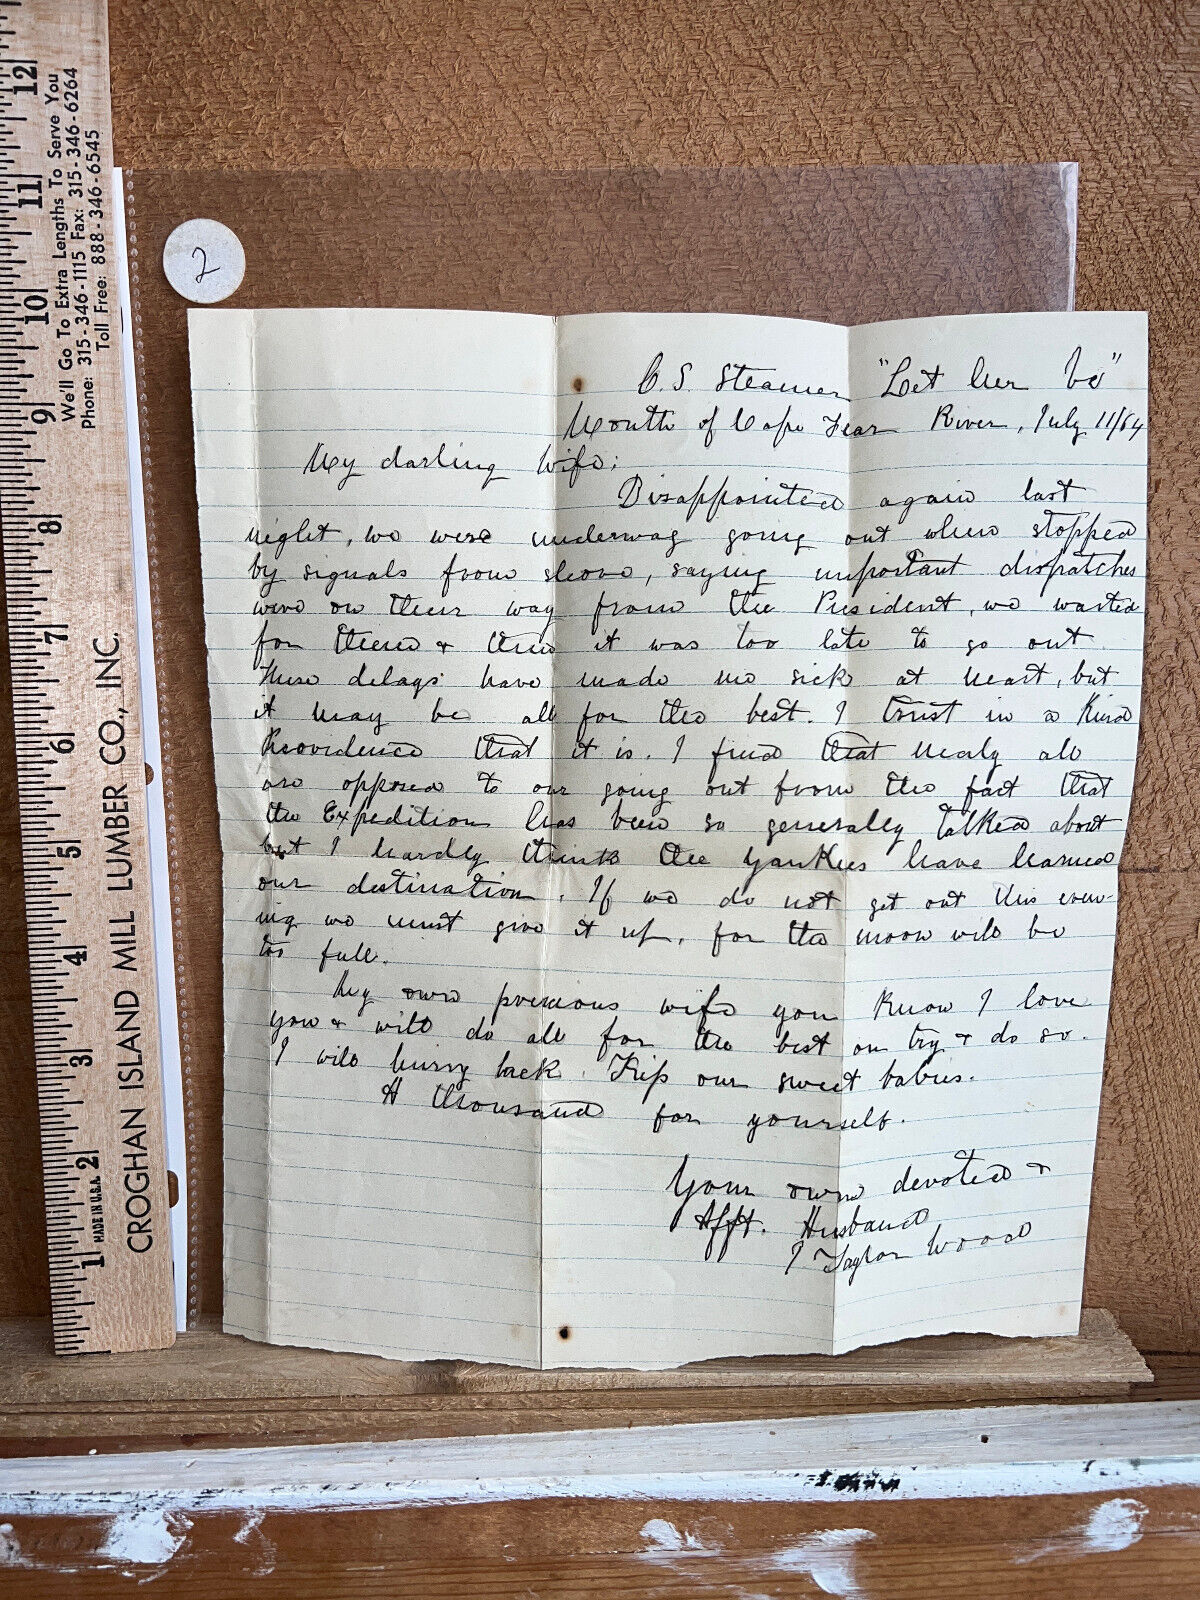 12
11
10
9
8
7
6
5
4
3
2
1
We'll Go To Extra Lengths To Serve You
Phone: 315-346-1115 Fax: 315-346-6264
Toll Free: 888-346-6545
CROGHAN ISLAND MILL LUMBER CO., INC.
MADE IN U.S.A.
2
C. S. Steamer "Let her be"
Mouth of Cape Fear River, July 11/64
My darling Wife;
Disappointed again last
night, we were underway going out when stopped
by signals from shore, saying important dispatches
were on their way from the President, we waited
for them & then it was too late to go out
These delays have made me sick at heart, but
it may be all for the best. I trust in a Kind
Providence that it is. I find that nearly all
are opposed to our going out from the fact that
the Expedition has been so generally talked about
but I hardly think the Yankees have learned
our destination. If we do not get out this even-
ing we must give it up, for the moon will be
too full.
My own precious wife you Know I love
you & will do all for the best or try & do so.
I will hurry back. Kiss our sweet babies.
A thousand for yourself.
Your own devoted &
Afft. Husband
J Taylor Wood